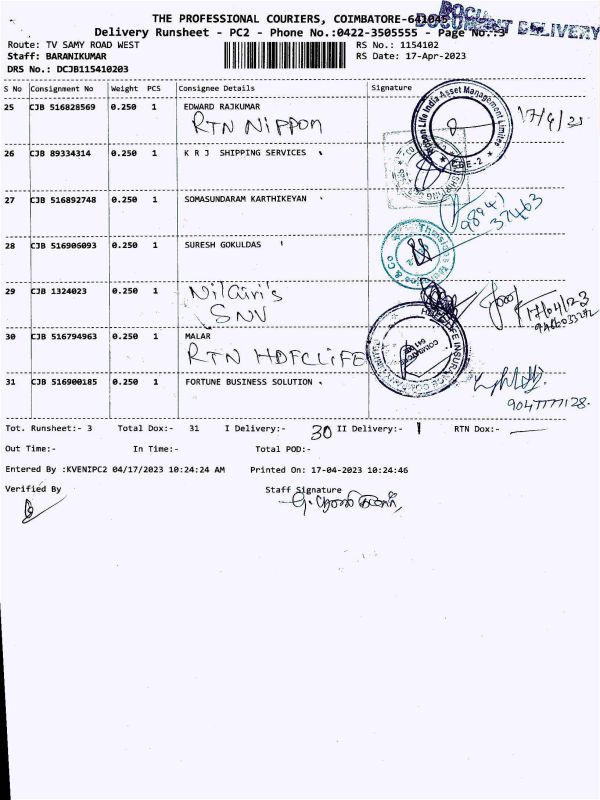 THE PROFESSIONAL COURIERS, COIMBATORE-641045
DOCUMENT DELIVERY
Delivery Runsheet - PC2 - Phone No.:0422-3505555 - Page No.:3
Route: TV SAMY ROAD WEST RS No.: 1154102
Staff: BARANIKUMAR RS Date: 17-Apr-2023
DRS No.: DCJB115410203
S No Consignment No Weight PCS Consignee Details Signature
25 CJB 516828569 0.250 1 EDWARD RAJKUMAR
RTN NIPPON
Nippon Life India Asset Management Limited
CBE-2
26 CJB 89334314 0.250 1 K R J SHIPPING SERVICES
27 CJB 516892748 0.250 1 SOMASUNDARAM KARTHIKEYAN
98941
37463
28 CJB 516906093 0.250 1 SURESH GOKULDAS
29 CJB 1324023 0.250 1 Nilgiri's
SNV
17/04/23
30 CJB 516794963 0.250 1 MALAR
RTN HDFC LIFE
31 CJB 516900185 0.250 1 FORTUNE BUSINESS SOLUTION
9047777128.
Tot. Runsheet:- 3 Total Dox:- 31 I Delivery:- 30 II Delivery:- 1 RTN Dox:- —
Out Time:- In Time:- Total POD:-
Entered By :KVENIPC2 04/17/2023 10:24:24 AM Printed On: 17-04-2023 10:24:46
Verified By Staff Signature